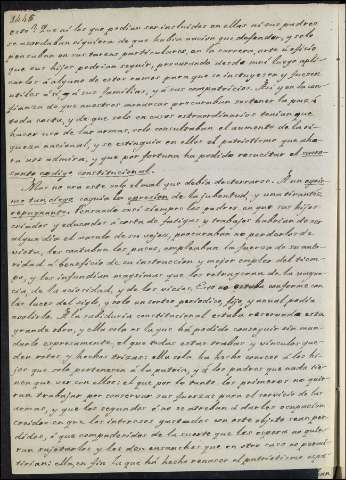 1445
esto? Pues ni los que podian ser incluidos en ellas ni sus padres
se acordaban siquiera de que habia nacion que defender, y solo
pensaban en sus tareas particulares, en la carrera, arte ú oficio
que sus hijos podrian seguir, procurando desde muy luego apli-
carlos á alguno de estos ramos para que se instruyesen y fuesen
utiles á sí, á sus familias, y á sus compatricios. Asi y en la con-
fianza de que nuestros monarcas procuraban sostener la paz á
toda costa, y de que solo en casos extraordinarios tenian que
hacer uso de las armas, solo consultaban el aumento de la ri-
queza nacional, y se extinguia en ellos el patriotismo que aho-
ra nos admira, y que por fortuna ha podido resucitar el
codigo constitucional.
Mas no era este solo el mal que debia desterrarse. A un
tan ciego seguia la opresion de la juventud, y una tirantez
repugnante. Pensando casi siempre los padres, en que sus hijos
criados y educados á costa de fatigas y trabajos habrian de ser
algun dia el apoyo de su vejez, procuraban no perderlos de
vista, les contaban los pasos, empleaban la fuerza de su auto-
ridad á beneficio de su instruccion y mejor empleo del tiem-
po, y les infundian maximas que los retragesen de la vagan-
cia, de la ociosidad, y de los vicios. Eso no estaba conforme con
las luces del siglo, y solo un sorteo periodico, fijo y anual podia
abolirlo. A la sabiduria constitucional estaba reservada esta
grande obra, y ella sola es la que ha podido conseguir sin man-
darlo expresamente, el que todas estas trabas y vinculos que-
den rotos y hechos trizas: ella sola ha hecho conocer á los hi-
jos que solo pertenecen á la patria, y á los padres que nada tie-
nen que ver con ellos: el que por lo tanto los primeros no quie-
ran trabajar por conservar sus fuerzas para el servicio de las
armas, y que los segundos ó no se atrevan á darles ocupacion
creidos en que los intereses gastados con este objeto sean per-
didos, ó que compadecidos de la suerte que les espera no quie-
ran sujetarlos y les den ensanches que en otro caso no permi-
tirian: ella, en fin la que há hecho renacer el patriotismo espa-